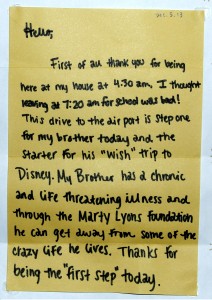 DEC. 5. 13
Hello,
First of all thank you for being
here at my house at 4:30 am. I thought
leaving at 7:20 am for school was bad!
This drive to the air port is step one
for my brother today and the
starter for his "wish" trip to
Disney. My Brother has a chronic
and life threatening illness and
through the Marty Lyons foundation
he can get away from some of the
crazy life he lives. Thanks for
being the "first step" today.